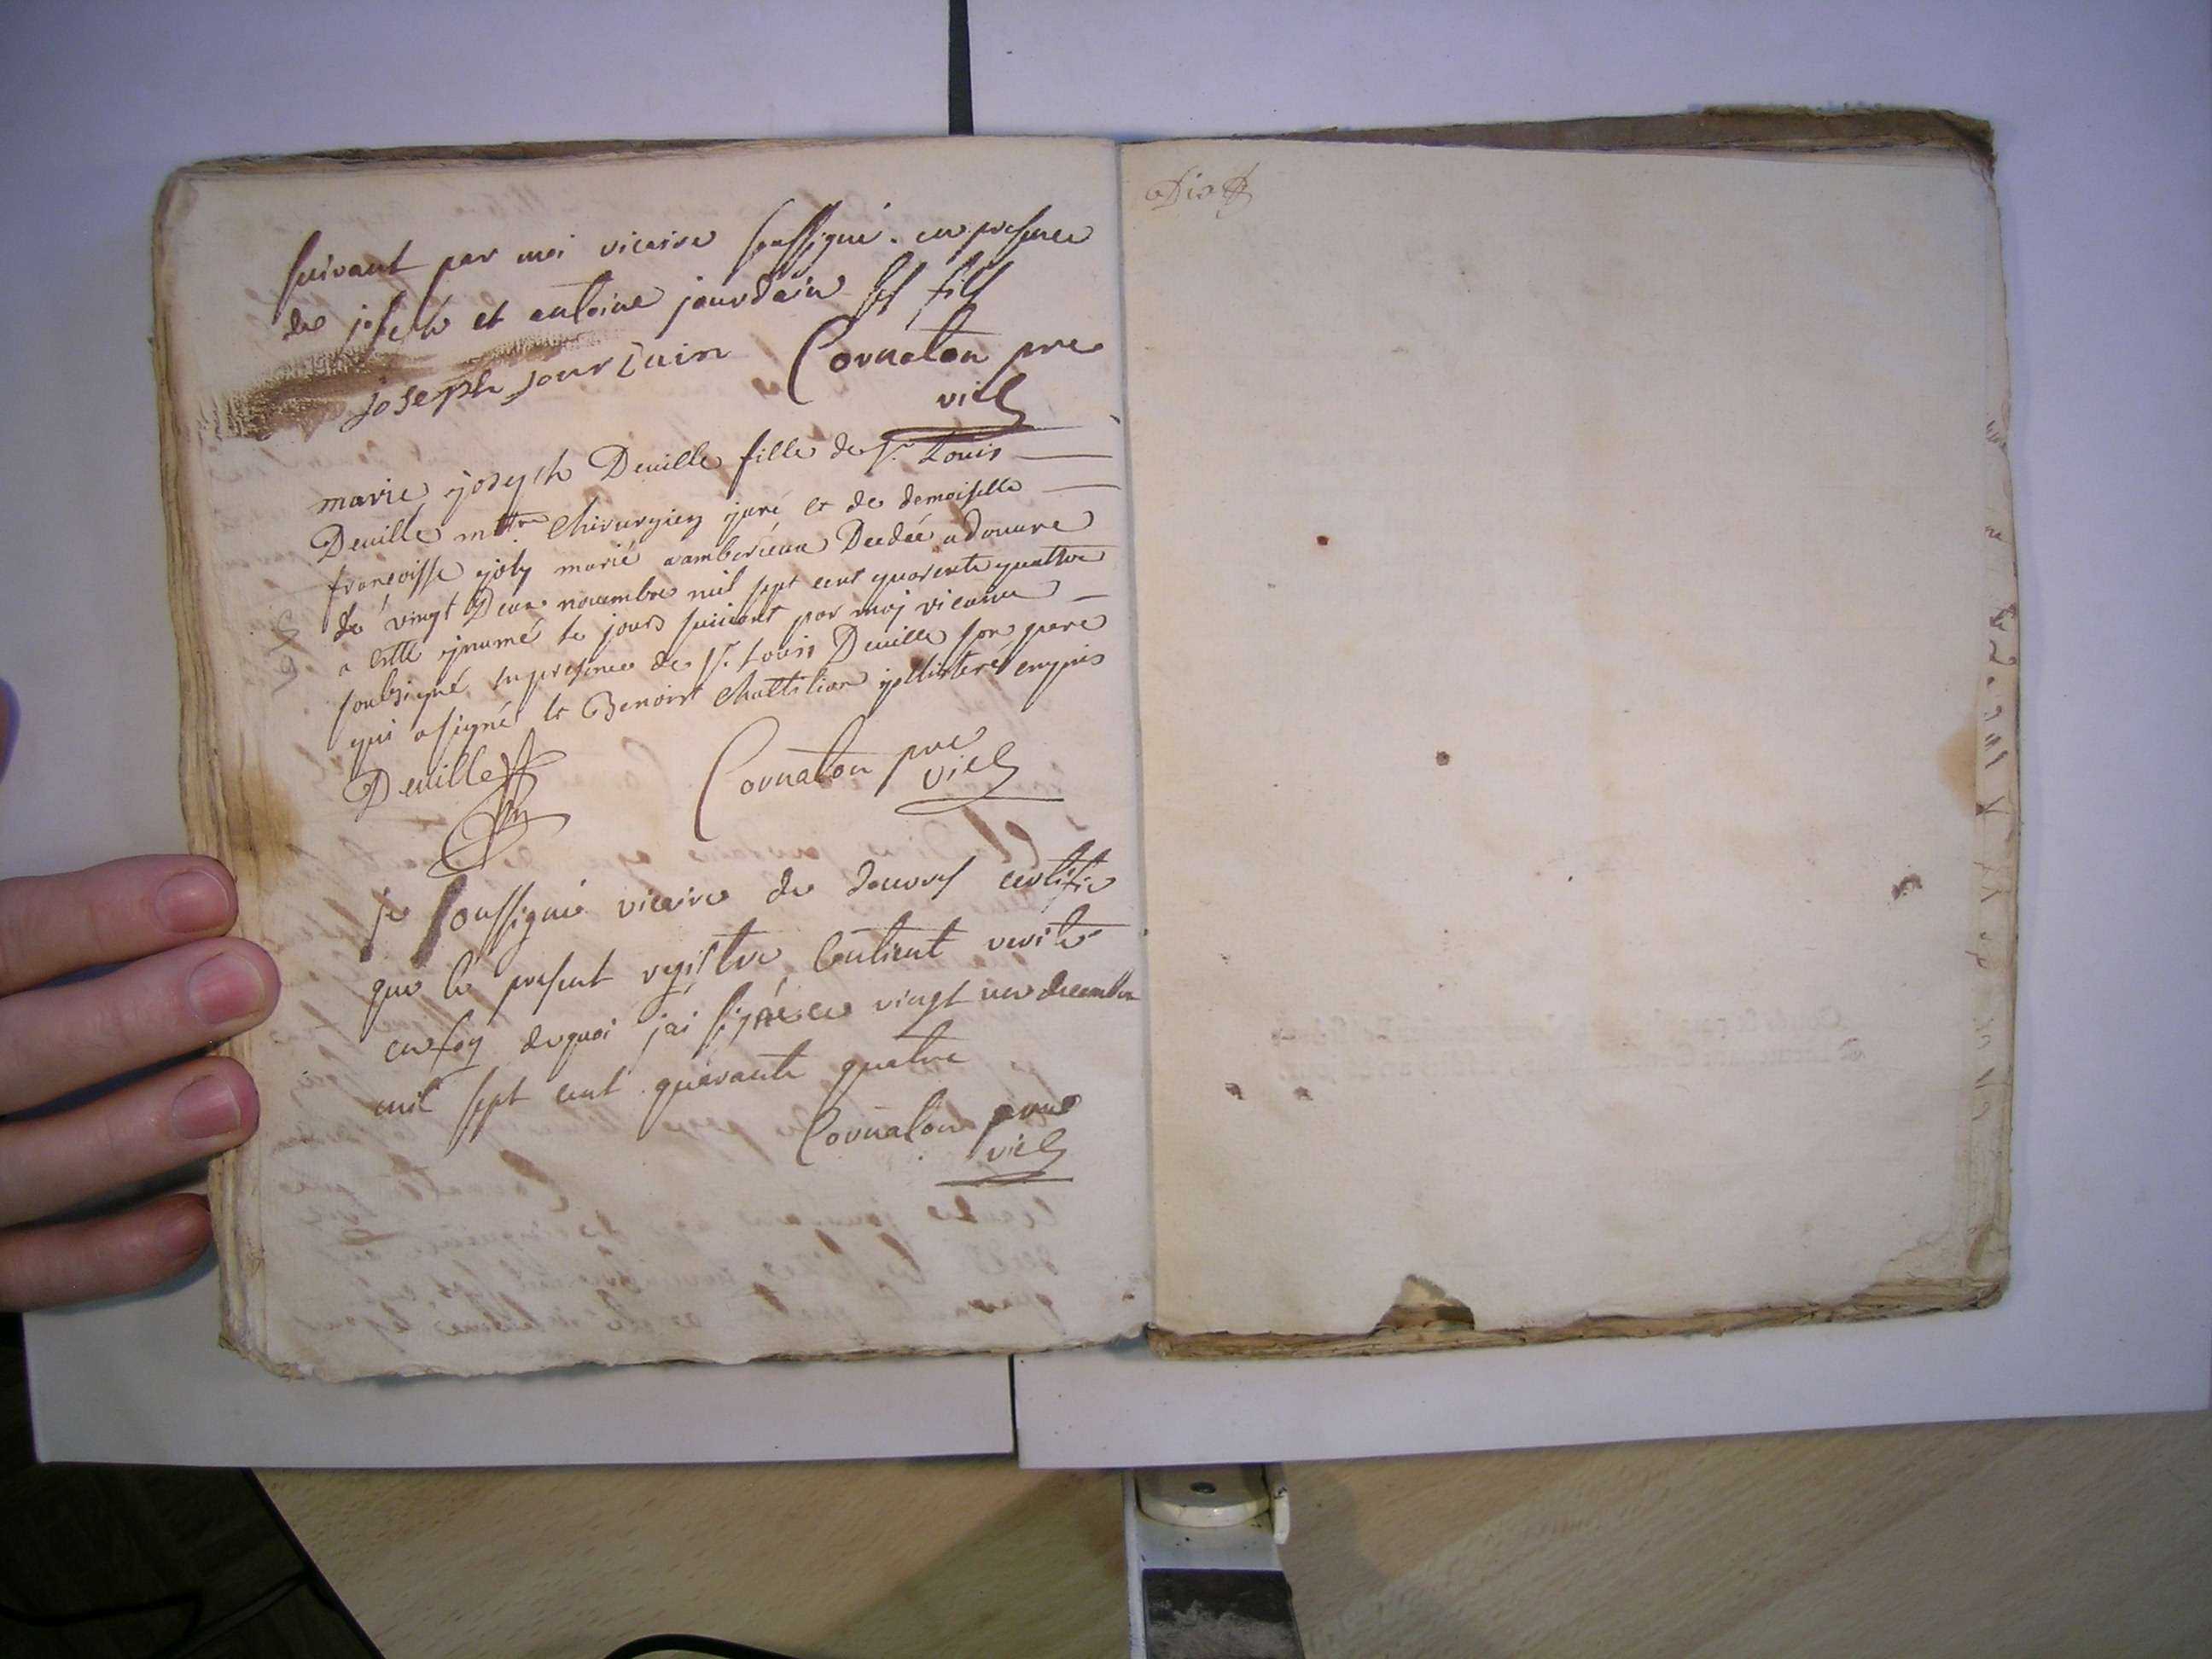 suivant par moi vicaire soussigné. en presence
de joseph et antoine jourdain ses fils
joseph jourdain Cornaton pre
vic
marie joseph Deville fille de Sr. Louis
Deville mttre. Chirurgien juré et de demoiselle
françoisse joly marié a amberieux Decdée a douvre
de vingt Deux nouembre mil sept cent quarente quattre
a esté ynumé le jours suiuant par moy vicaire
soubsigné en presence de Sr. Louis Deuille son pere
qui a signé et Benoist Chattilion
Deuille Cornaton pre
vic
je soussigné vicaire de douvres certifie
que le present registre Contient verité
en foy de quoi j'ai signé ce vingt un decembre
mil sept cent quarante quatre
Cornaton pre
vic
Dix